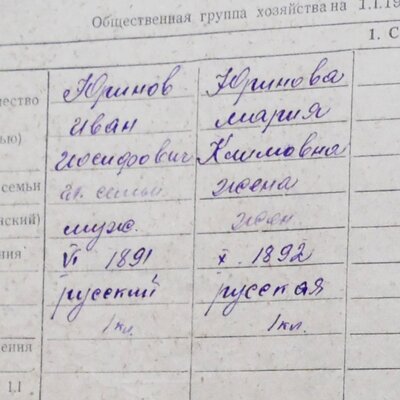 Общественная группа хозяйства на 1.I.19
1. С
ество Юринов Юринова
Иван Мария
ью) Иосифович Климовна
семьи гл. семьи жена
нский) муж. жен.
ния VI 1891 X. 1892
русский русская
1 кл. 1 кл.
ения
1.I